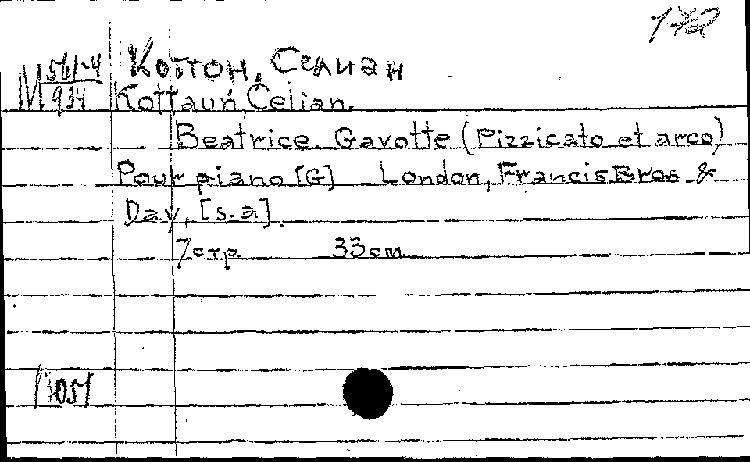 172
М 561-4 Коттон, Селиан
934 Kottaun Celian.
Beatrice. Gavotte (Pizzicato et arco)
Pour piano [G] London, Francis Bros &
Day, [s.a].
7 стр 33 см
13051